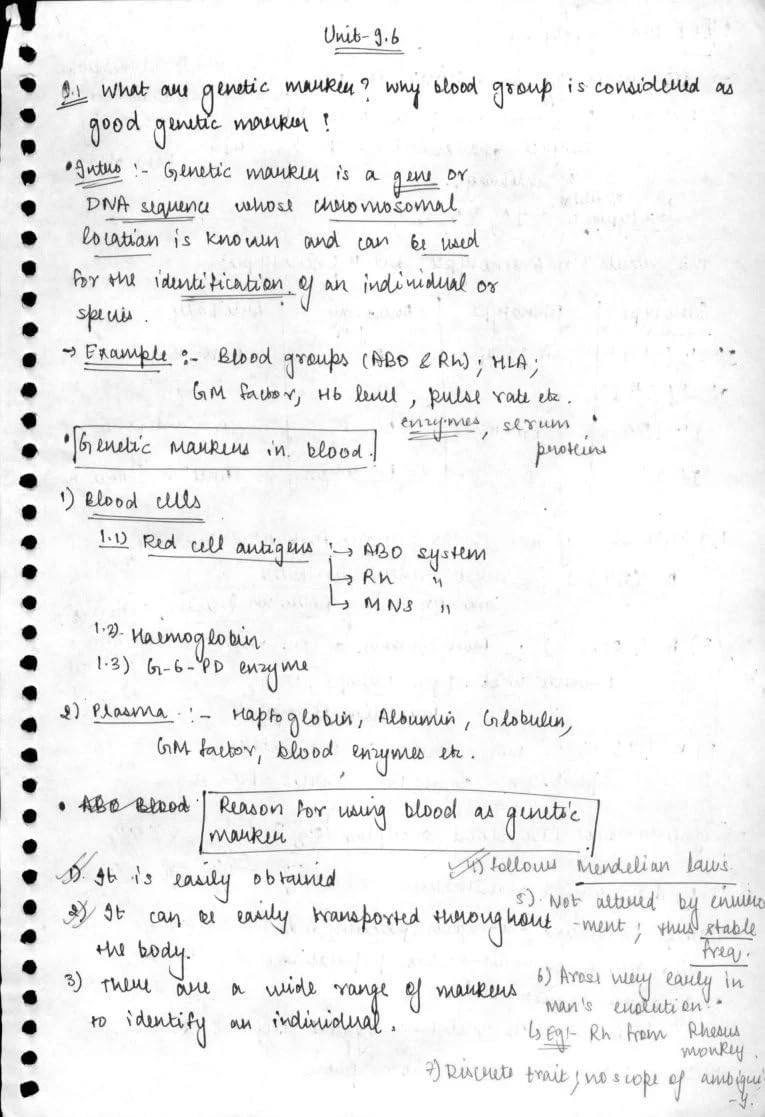 Unit-9.6
Q.1 What are genetic marker? Why blood group is considered as
good genetic marker!
• Intro :- Genetic marker is a gene or
DNA sequence whose chromosomal
location is known and can be used
for the identification of an individual or
species.
→ Example :- Blood groups (ABO & Rh); HLA;
GM factor, Hb level, pulse rate etc.
enzymes, serum
proteins
• Genetic markers in blood.
1) Blood cells
1.1) Red cell antigens :→ ABO system
↳ Rh "
↳ MNS "
1.2) Haemoglobin
1.3) G-6-PD enzyme
2) Plasma :- Haptoglobin, Albumin, Globulin,
GM factor, blood enzymes etc.
• ABO Blood Reason for using blood as genetic
marker
1) It is easily obtained
2) It can be easily transported throughout
the body.
3) There are a wide range of markers
to identify an individual.
4) follows Mendelian laws
5) Not altered by enviro
-ment; thus stable
freq.
6) Arose very early in
man's evolution.
↳ Eg:- Rh from Rhesus
monkey.
7) Discrete trait; no scope of ambigui
-y.